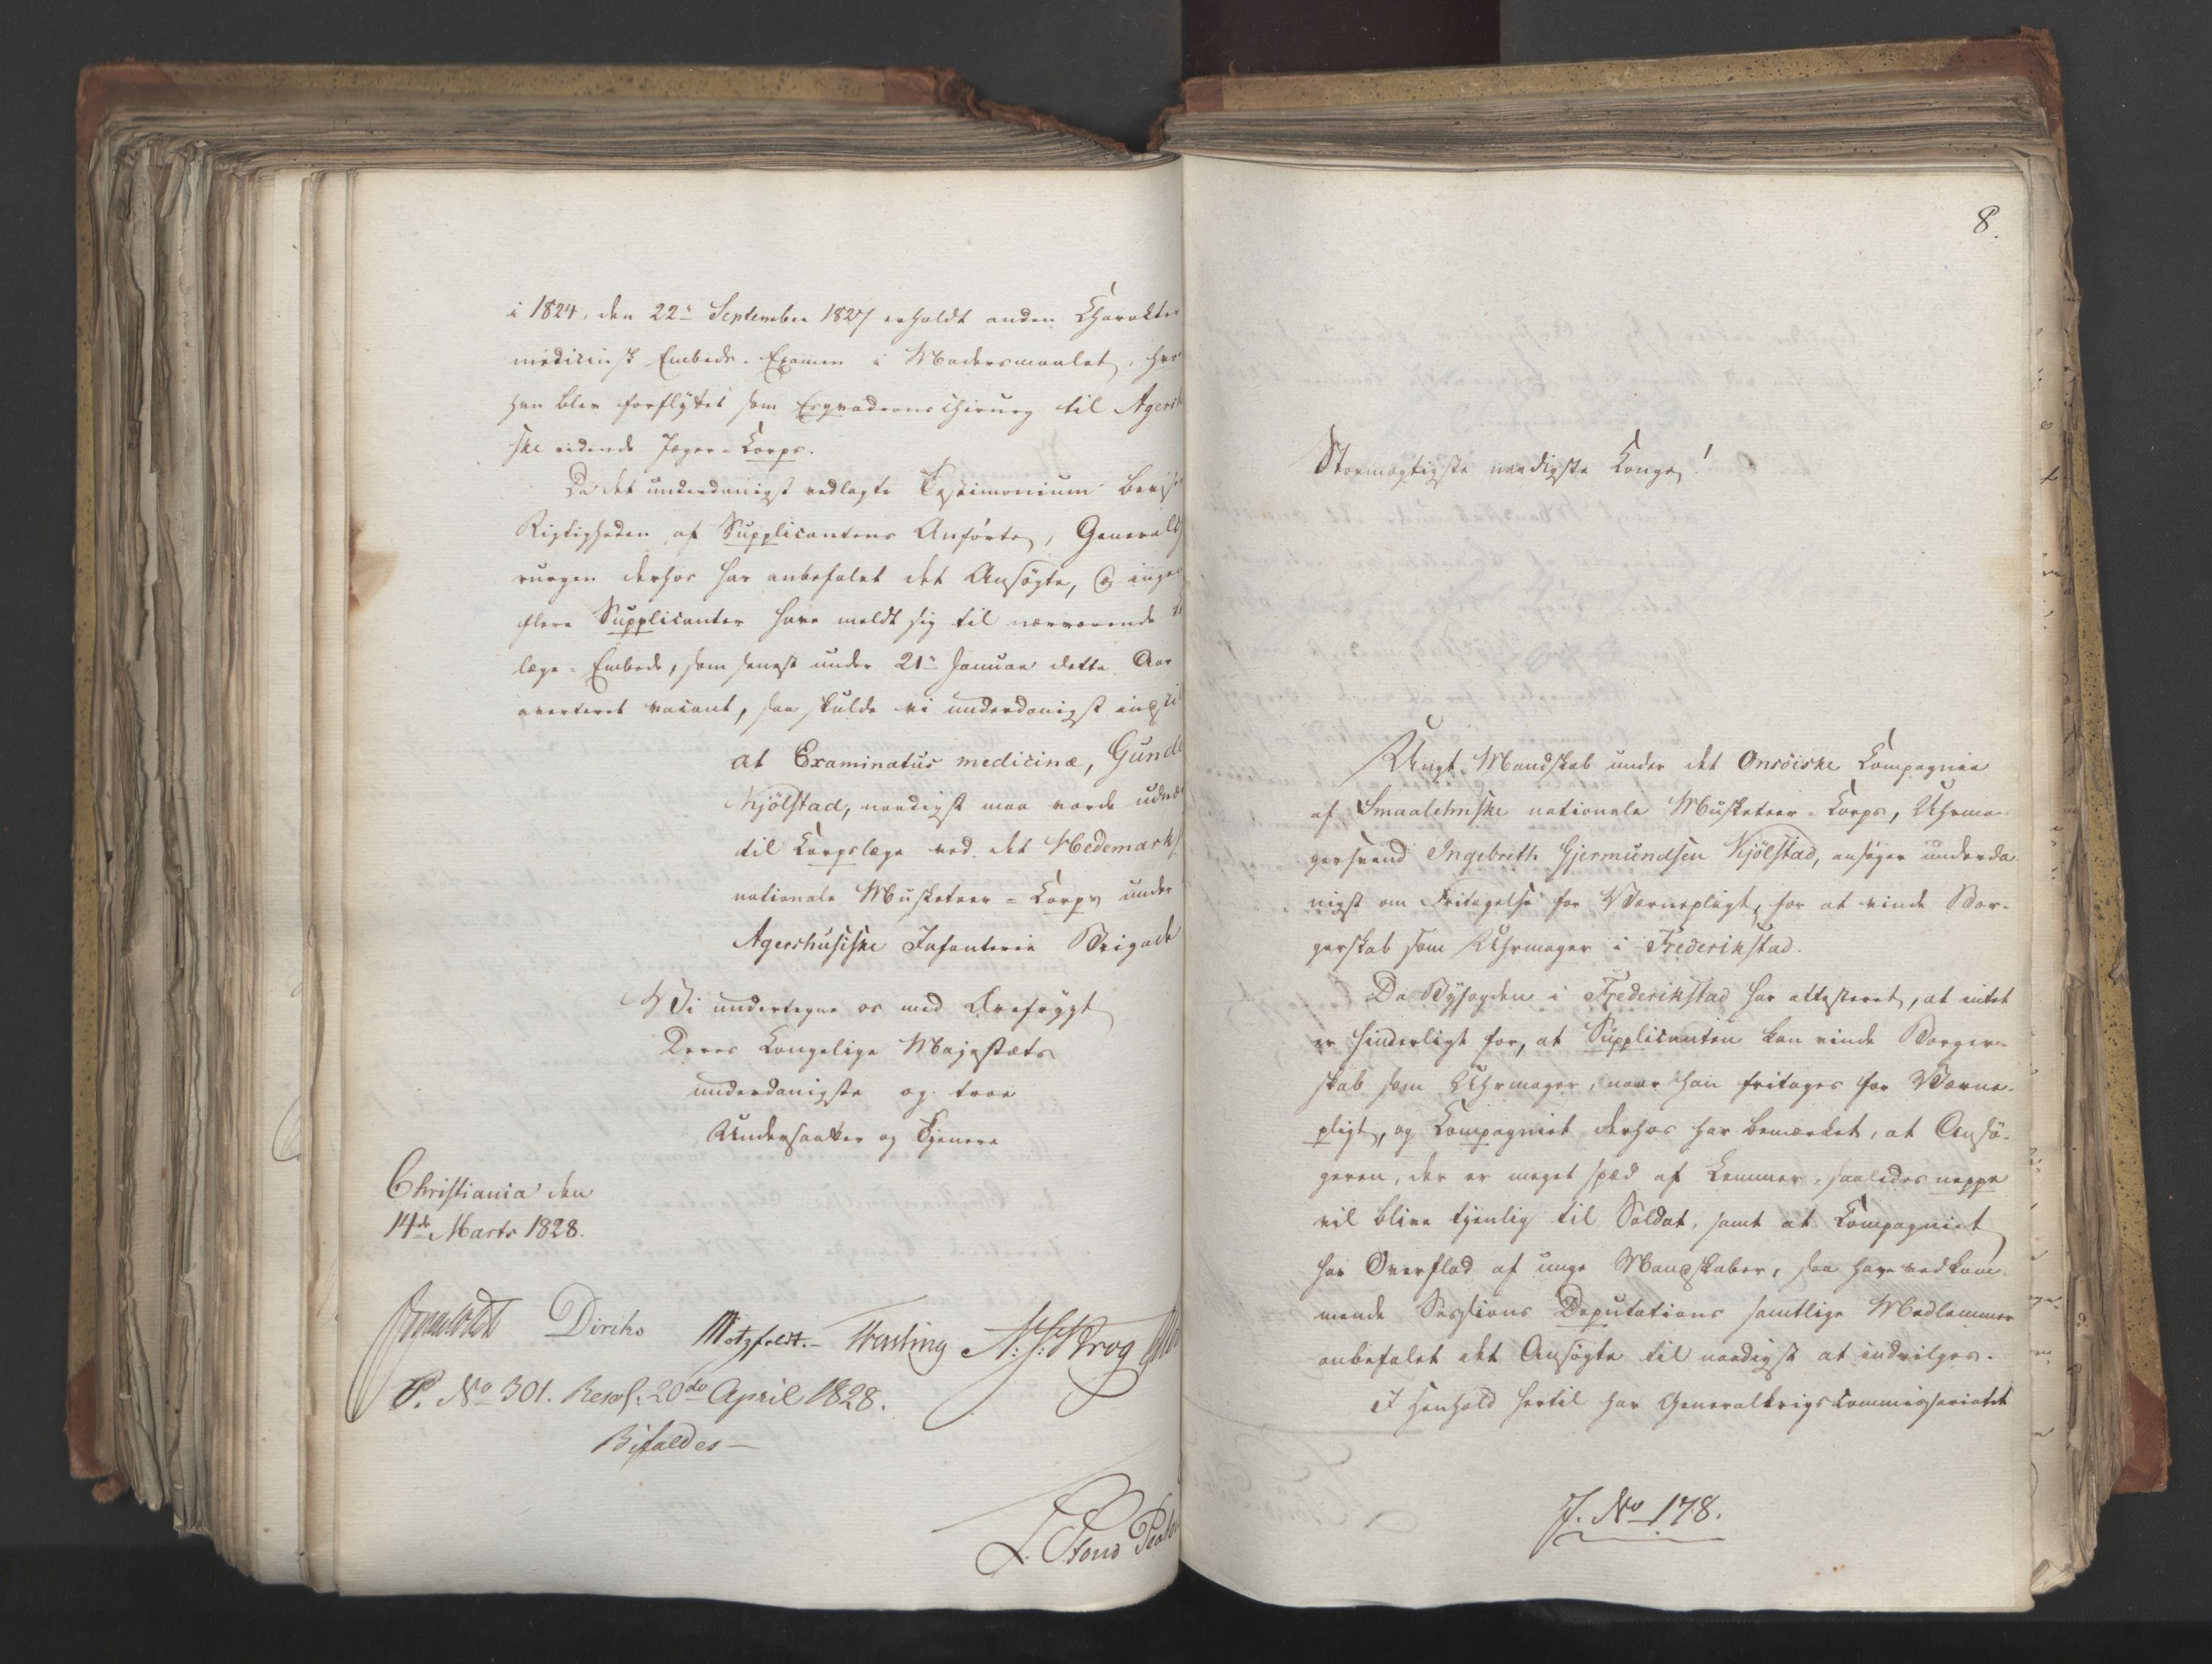 i 1824, den 22de September 1827 erholdt anden Charakter
medicinsk Embeds-Examen i Modersmaalet,
han blev forflyttet som Esqvadronschirurg til Agershusi
ske ridende Jæger-Corps.
Da det underdanigst vedlagte Testimonium beviser
Rigtigheden af Supplicantens Anførte, Generalchi
rurgen derhos har anbefalet det Ansøgte, og ingen
flere Supplicanter have meldt sig til nærværende
læge-Embede, som senest under 21de Januar dette Aar
averteret vacant, saa skulde vi underdanigst indstille
at Examinatus medicinæ, Gunde
Kjölstad, naadigst maa vorde udnæv
til Corpslæge ved det Hedemarkske
nationale Musketeer-Corps under
Agershusiske Infanterie Brigade
Vi undertegne os med Ærefrygt
Deres Kongelige Majestæts
underdanigste og troe
Undersaatter og Tjenere
Christiania den
14de Marts 1828.
Diriks Motzfeldt. Treschow N. J. Krog
P. No 301. Resol. 20de April 1828.
Bifaldes
8.
Stormægtigste naadigste Konge!
Ungt Mandskab under det Onsöiske Compagnie
af Smaalehnske nationale Musketeer-Corps, Uhrma-
gersvend Ingebreth Gjermundsen Kjölstad, ansøger underda-
nigst om Fritagelse for Værnepligt, for at vinde Bor-
gerskab som Uhrmager i Frederikstad.
Da Byfogden i Frederikstad har attesteret, at intet
er hinderligt for, at Supplicanten kan vinde Borger-
skab som Uhrmager, naar han fritages for Værne-
pligt, og Compagniet derhos har bemærket, at Ansø-
geren, der er meget spæd af Lemmer, saaledes neppe
vil blive tjenlig til Soldat, samt at Compagniet
har Overflod af unge Mandskaber, saa have vedkom-
mende Sessions Deputations samtlige Medlemmer
anbefalet det Ansøgte til naadigst at indvilges.
I Henhold hertil har Generalkrigscommissariatet
J. No 178.